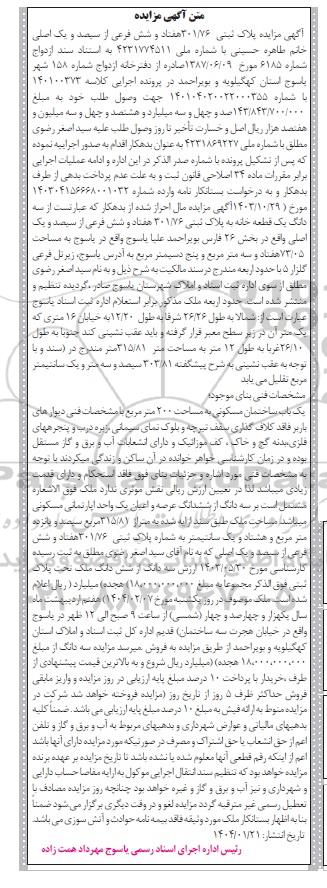 متن آگهی مزایده
آگهی مزایده پلاک ثبتی ۳۰۱/۷۶هفتاد و شش فرعی از سیصد و یک اصلی
خانم طاهره حسینی با شماره ملی ۴۲۳۱۷۷۴۵۱۱ به استناد سند ازدواج
شماره ۶۱۸۵ مورخ ۱۳۸۷/۰۶/۰۹صادره از دفترخانه ازدواج شماره ۱۵۸ شهر
یاسوج استان کهگیلویه و بویراحمد در پرونده اجرایی کلاسه ۱۴۰۱۰۰۳۷۳
با شماره ۱۴۰۱۰۴۰۳۰۰۲۲۰۰۰۳۵۵ جهت وصول طلب خود به مبلغ
۱۴۳/۸۴۳/۷۰۰/۰۰۰صد و چهل و سه میلیارد و هشتصد و چهل و سه میلیون و
هفتصد هزار ریال اصل و خسارت تأخیر تا روز وصول طلب علیه سید اصغر رضوی
مطلق با شماره ملی ۴۲۳۱۸۶۹۲۲۷ به عنوان بدهکار اقدام به صدور اجراییه نموده
که پس از تشکیل پرونده با شماره صدر الذکر در این اداره و ادامه عملیات اجرایی
برابر مقررات ماده ۳۴ اصلاحی قانون ثبت و به علت عدم پرداخت بدهی از طرف
بدهکار و به درخواست بستانکار نامه وارده شماره ۱۴۰۳۰۴۱۵۶۶۶۸۰۰۱۰۳۲
مورخ ( ۱۴۰۳/۱۰/۲۹)آگهی مزایده مال احراز شده از بدهکار که عبارتست از سه
دانگ یک قطعه خانه به پلاک ثبتی ۳۰۱/۷۶ هفتاد و شش فرعی از سیصد و یک
اصلی واقع در بخش ۲۶ فارس بویراحمد علیا یاسوج واقع در یاسوج به مساحت
۷۳/۰۵هفتاد و سه متر مربع و پنج دسیمتر مربع به آدرس یاسوج، زیرتل فرعی
گلزار ۵ با حدود اربعه مندرج در سند مالکیت به شرح ذیل و به نام سید اصغر رضوی
مطلق از سوی اداره ثبت اسناد و املاک شهرستان یاسوج صادر ،گردیده تنظیم و
منتشر شده است حدود اربعه ملک مذکور برابر استعلام اداره ثبت اسناد یاسوج
عبارت است از: شمالا به طول ۲۶/۲۶ شرقا به طول ۱۲/۲۰ به خیابان ۱۶ متری که
یک متر آن در زیر سطح معبر قرار گرفته و باید عقب نشینی کند جنوبا به طول
۲۶/۱۰غربا به طول ۱۲ متر به مساحت متر ۳۱۵/۸۱متر مندرج در (سند و با
توجه به عقب نشینی به شرح پیشگفته ۳۰۳/۸۱ سیصد و سه متر و یک سانتیمتر
مربع تقلیل می یابد
مشخصات فنی بنای موجود:
یک باب ساختمان مسکونی به مساحت ۲۰۰ متر مربع با مشخصات فنی دیوارهای
باربر فاقد کلاف گذاری سقف تیرچه و بلوک نمای سیمانی ،زیره درب و پنجرههای
فلزی،بدنه گچ و خاک ، کف موزائیک و دارای انشعابات آب و برق و گاز مستقل
بوده و در زمان کارشناسی خواهر خوانده در آن ساکن و زندگی میکردند با توجه
به مشخصات فنی مورد اشاره و جزئیات بنای فوق فاقد استحکام و دارای قدمت
زیادی میباشد لذا در تعیین ارزش ریالی نقش موثری ندارد ملک فوق الاشعاره
مشتمل است بر سه دانگ از ششدانگ عرصه و اعیان یک واحد آپارتمانی مسکونی
میباشد، مساحت ملک طبق سند ارایه شده به متراژ ۳۱۵/۸۱مربع سیصد و پانزده
متر مربع و هشتاد و یک سانتیمتر به شماره پلاک ثبتی ۳۰۱/۷۶هفتاد و شش
فرعی از سیصد و یک اصلی که به نام آقای سید اصغر رضوی مطلق به ثبت رسیده
کارشناسی مورخ ۱۴۰۳/۰۵/۳۰ ارزش سه دانگ از شش دانگ ملک تحت پلاک
ثبتی فوق الذکر مجموعا به مبلغ ۱۸،۰۰۰،۰۰۰،۰۰۰ هجده) میلیارد ( ریال اعلام
شده است ملک موصوف در روز یکشنبه مورخ ۱۴۰۴/۰۲/۰۷) هفتم اردیبهشت ماه
سال یکهزار و چهارصد و چهار (شمسی) از ساعت ۹ صبح الی ۱۲ ظهر در یاسوج
واقع در خیابان هجرت سه ساختمان) قدیم اداره کل ثبت اسناد و املاک استان
کهگیلویه و بویراحمد از طریق مزایده به فروش میرسد مزایده سه دانگ از مبلغ
۱۸،۰۰۰،۰۰۰،۰۰۰ هجده) (میلیارد ریال شروع و به بالاترین قیمت پیشنهادی از
طرف ،خریدار با پرداخت ۱۰ درصد مبلغ پایه ارزیابی در روز مزایده و واریز مابقی
فروش حداکثر ظرف ۵ روز از تاریخ روز (مزایده فروخته خواهد شد شرکت در
مزایده منوط به ارائه فیش به مبلغ ۱۰ درصد مبلغ پایه ارزیابی می باشد. ضمناً کلیه
بدهیهای مالیاتی و عوارض شهرداری و بدهیهای مربوط به آب و برق و گاز و تلفن
اعم از حق انشعاب یا حق اشتراک و مصرف در صورتیکه مورد مزایده دارای آنها باشد
اعم از اینکه رقم قطعی آنها معلوم شده یا نشده باشد تا تاریخ مزایده بر عهده برنده
مزایده خواهد بود که تنظیم سند انتقال اجرایی موکول به ارایه مفاصا حساب دارایی
و شهرداری و نیز آب و برق و گاز و غیره خواهد بود چنانچه روز مزایده مصادف با
تعطیل رسمی غیر مترقبه گردد مزایده لغو و در وقت دیگری برگزار می شود ضمناً
بنا به اظهار بستانکار ملک مورد وثیقه فاقد بیمه نامه حوادث و آتش سوزی می باشد.
تاریخ انتشار: ۱۴۰۴/۰۱/۲۱
رئیس اداره اجرای اسناد رسمی یاسوج مهرداد همت زاده